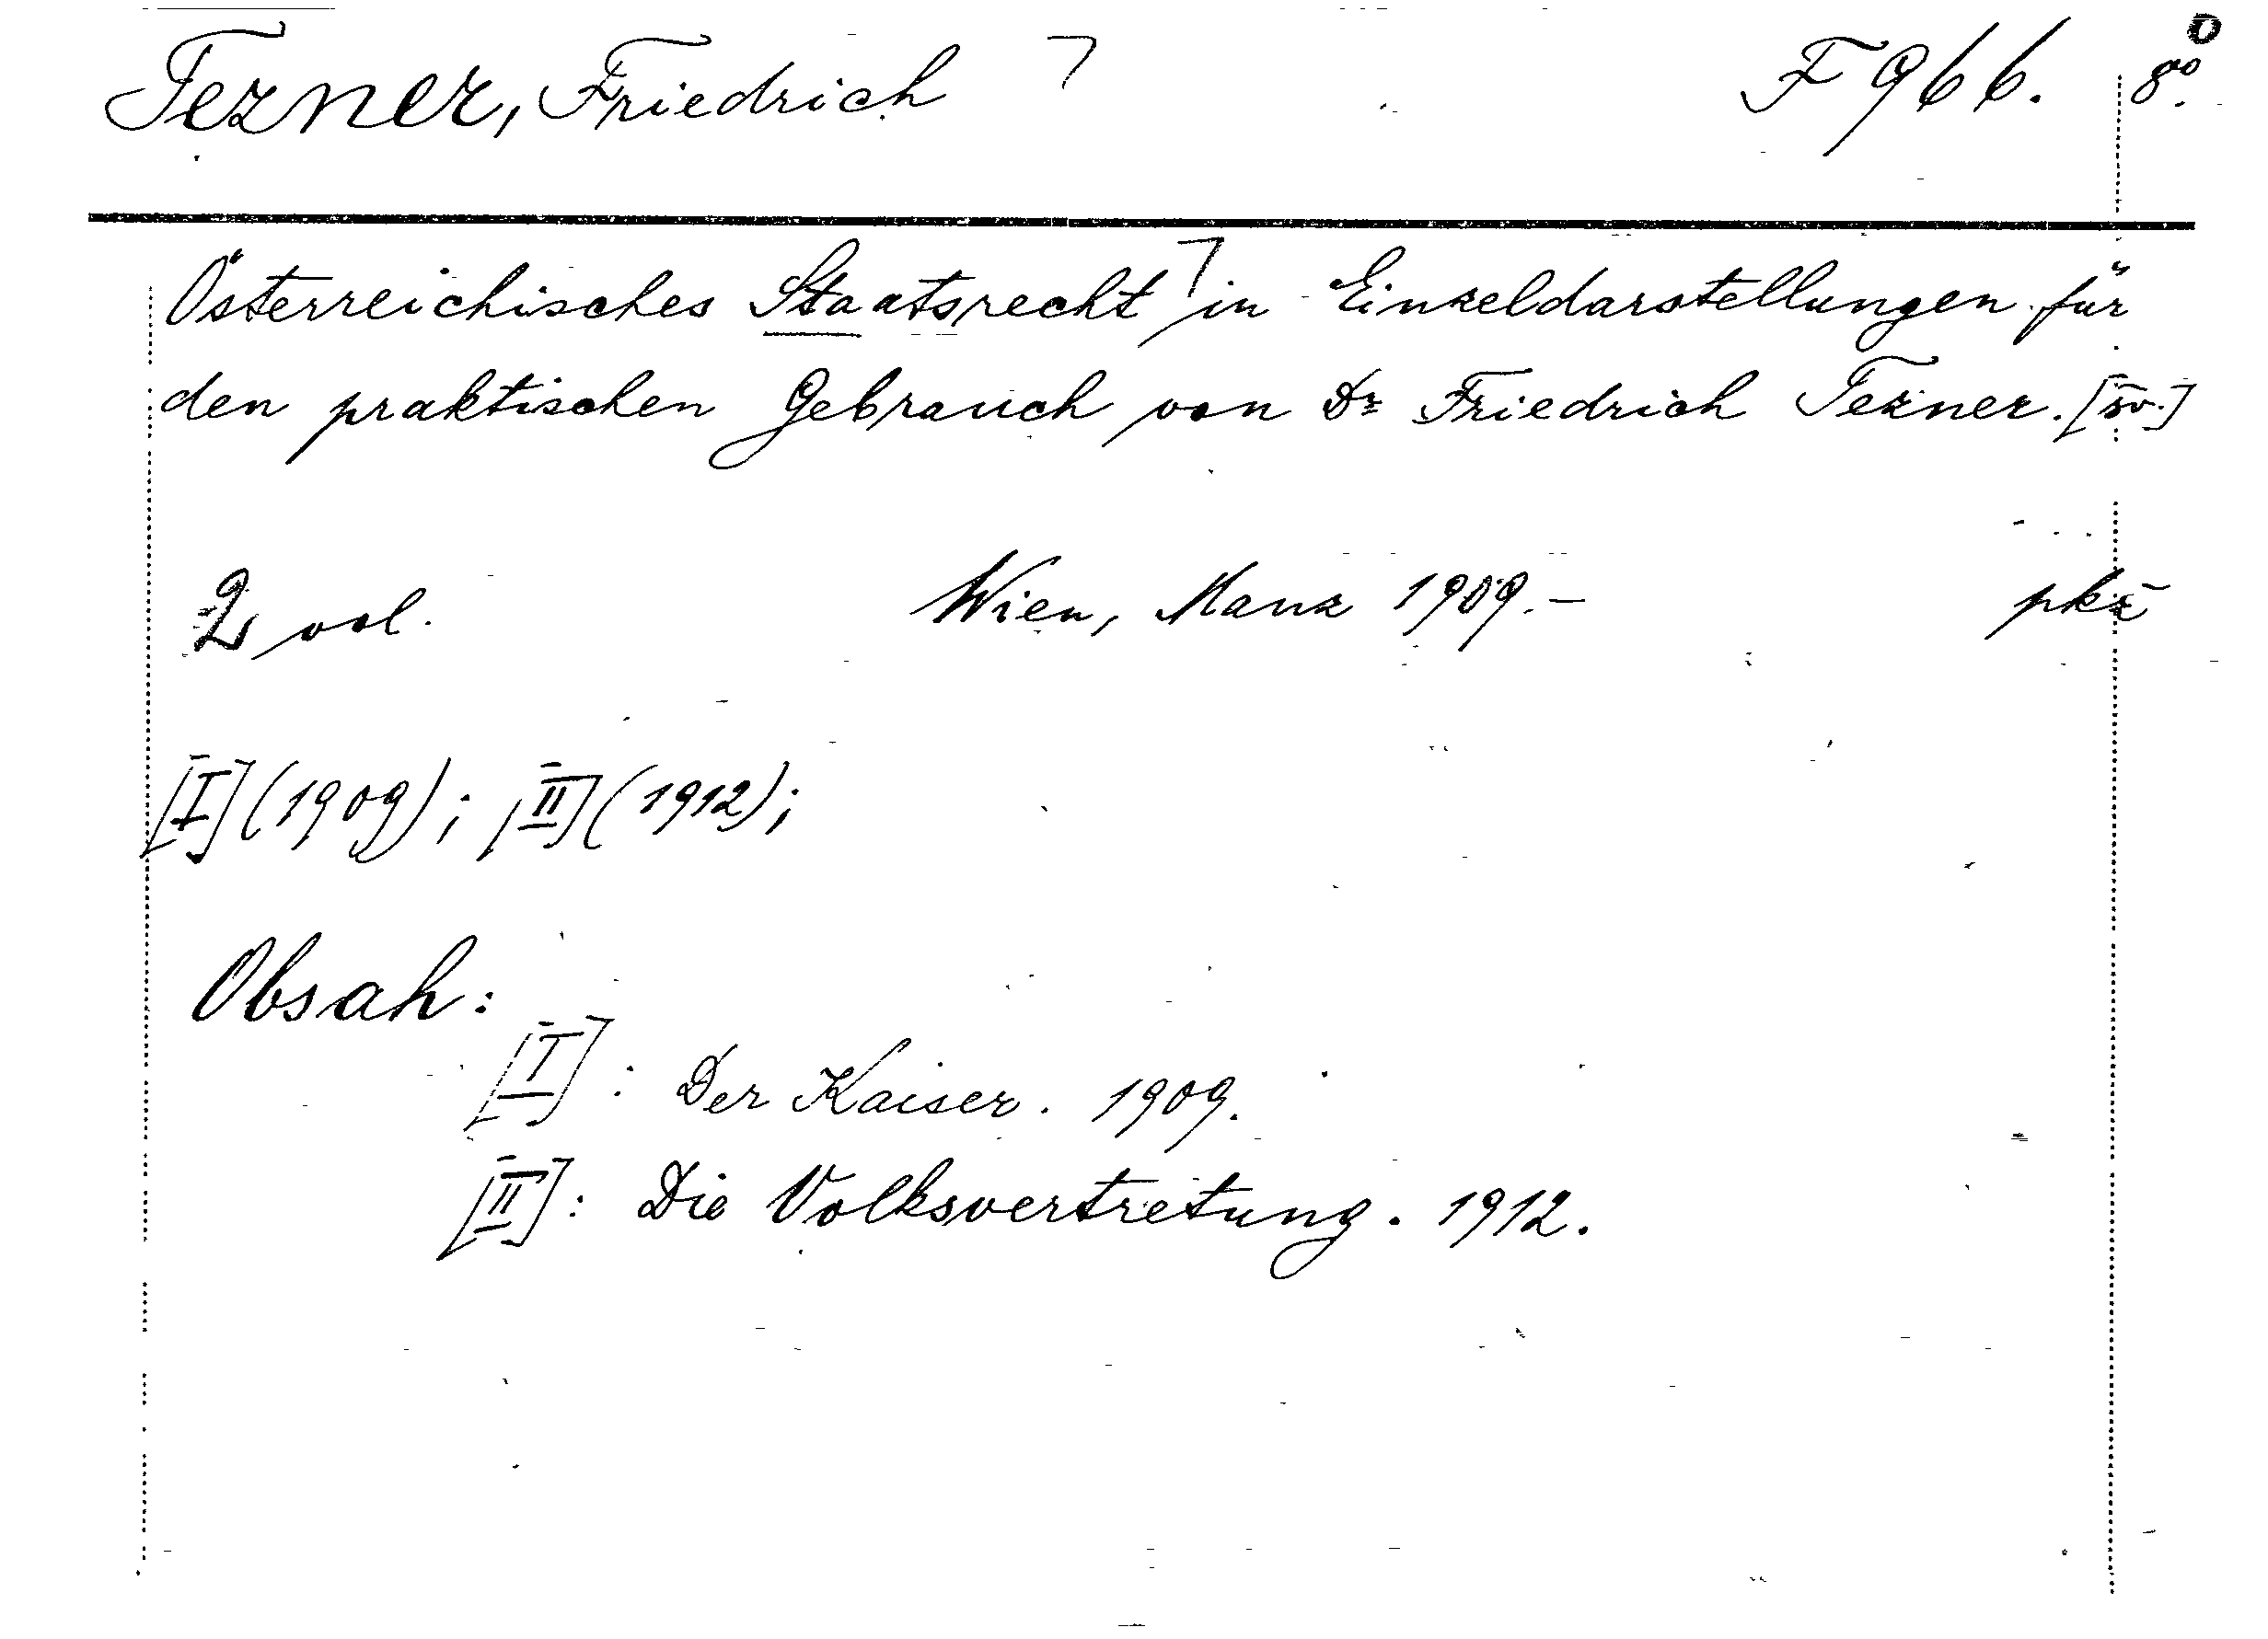 Tezner, Friedrich ⌝ F 966. 8°.
Österreichisches Staatsrecht ⌝ in Einzeldarstellungen für
den praktischen Gebrauch von Dr Friedrich Tezner. [sv.]
2 vol. Wien, Manz 1909.– pkž
[I] (1909); [II] (1912);
Obsah:
[I]: Der Kaiser. 1909.
[II]: Die Volksvertretung. 1912.